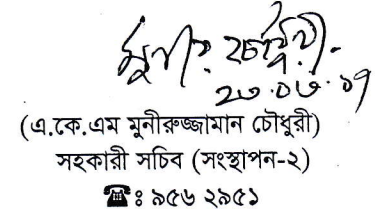 মুনীর চৌধুরী
২৩.০৩.১৭
(এ.কে.এম মুনীরুজ্জামান চৌধুরী)
সহকারী সচিব (সংস্থাপন-২)
☎ঃ ৯৫৬ ২৯৫১